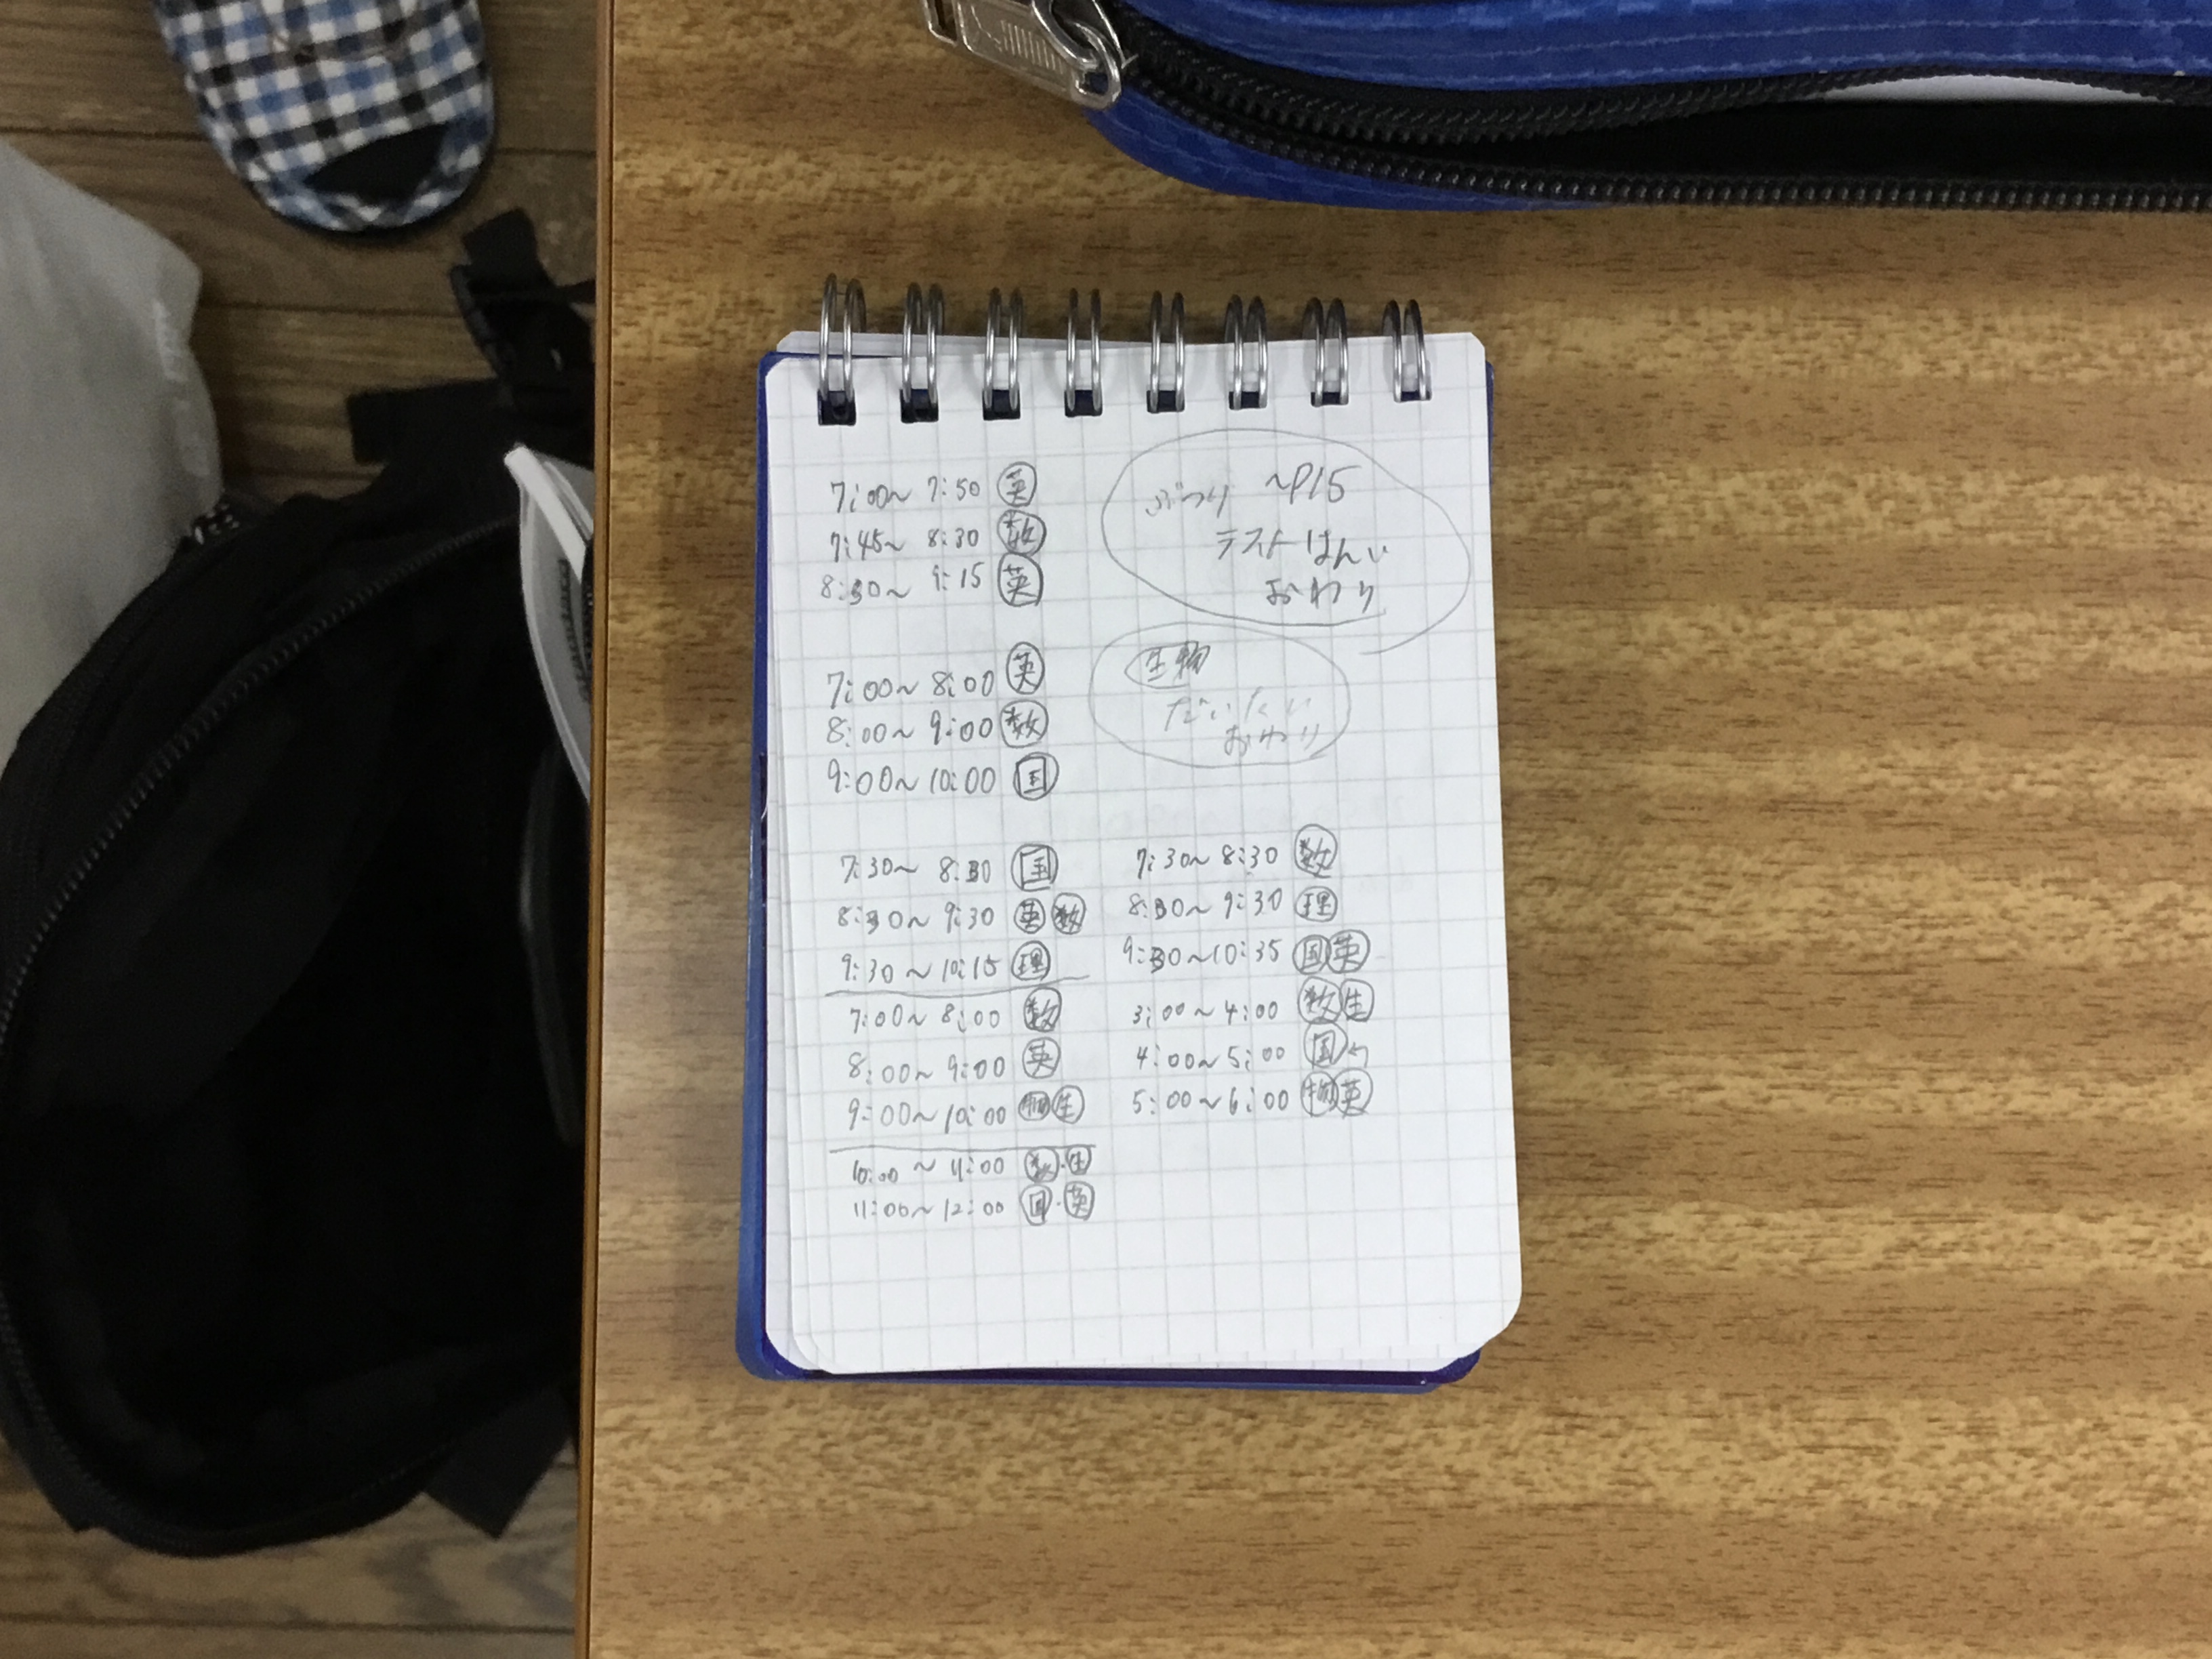 7:00~ 7:50 英
7:45~ 8:30 数
8:30~ 9:15 英
ぶつり ~P15
テストはんい
おわり
7:00~ 8:00 英
8:00~ 9:00 数
9:00~ 10:00 国
生物
だいたい
おわり
7:30~ 8:30 国
8:30~ 9:30 英 数
9:30~10:15 理
7:00~ 8:00 数
8:00~ 9:00 英
9:00~10:00 物 生
10:00 ~ 11:00 数・生
11:00~12:00 国・英
7:30~ 8:30 数
8:30~ 9:30 理
9:30~10:35 国 英
3:00~4:00 数 生
4:00~5:00 国
5:00~6:00 物 英